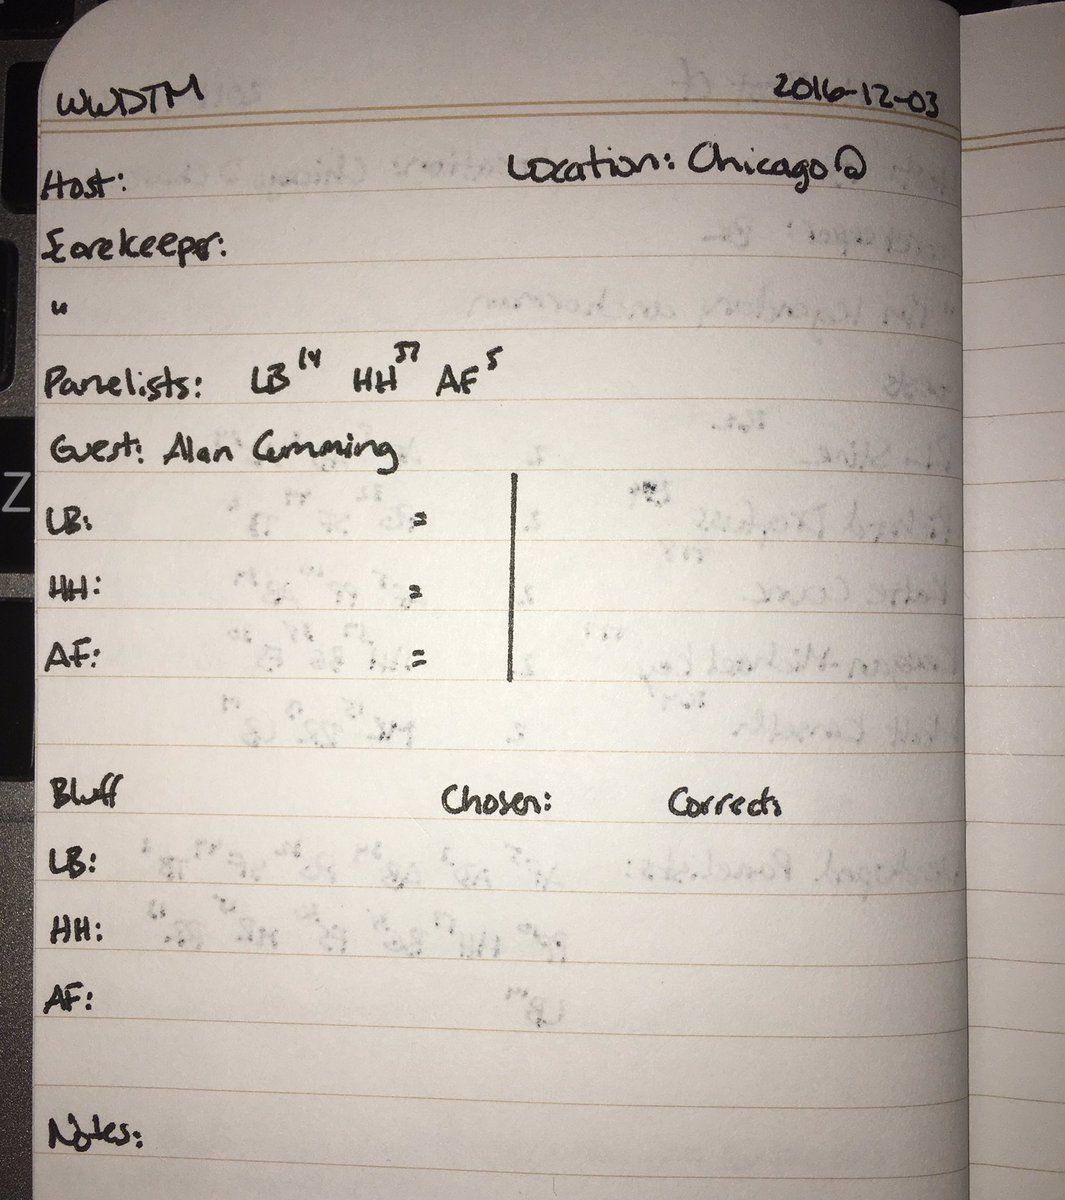 WWDTM 2016-12-03
Host: Location: Chicago
Scorekeeper:
"
Panelists: LB 14 HH 37 AF 5
Guest: Alan Cumming
LB: =
HH: =
AF: =
Bluff Chosen: Correct:
LB:
HH:
AF:
Notes:
Z